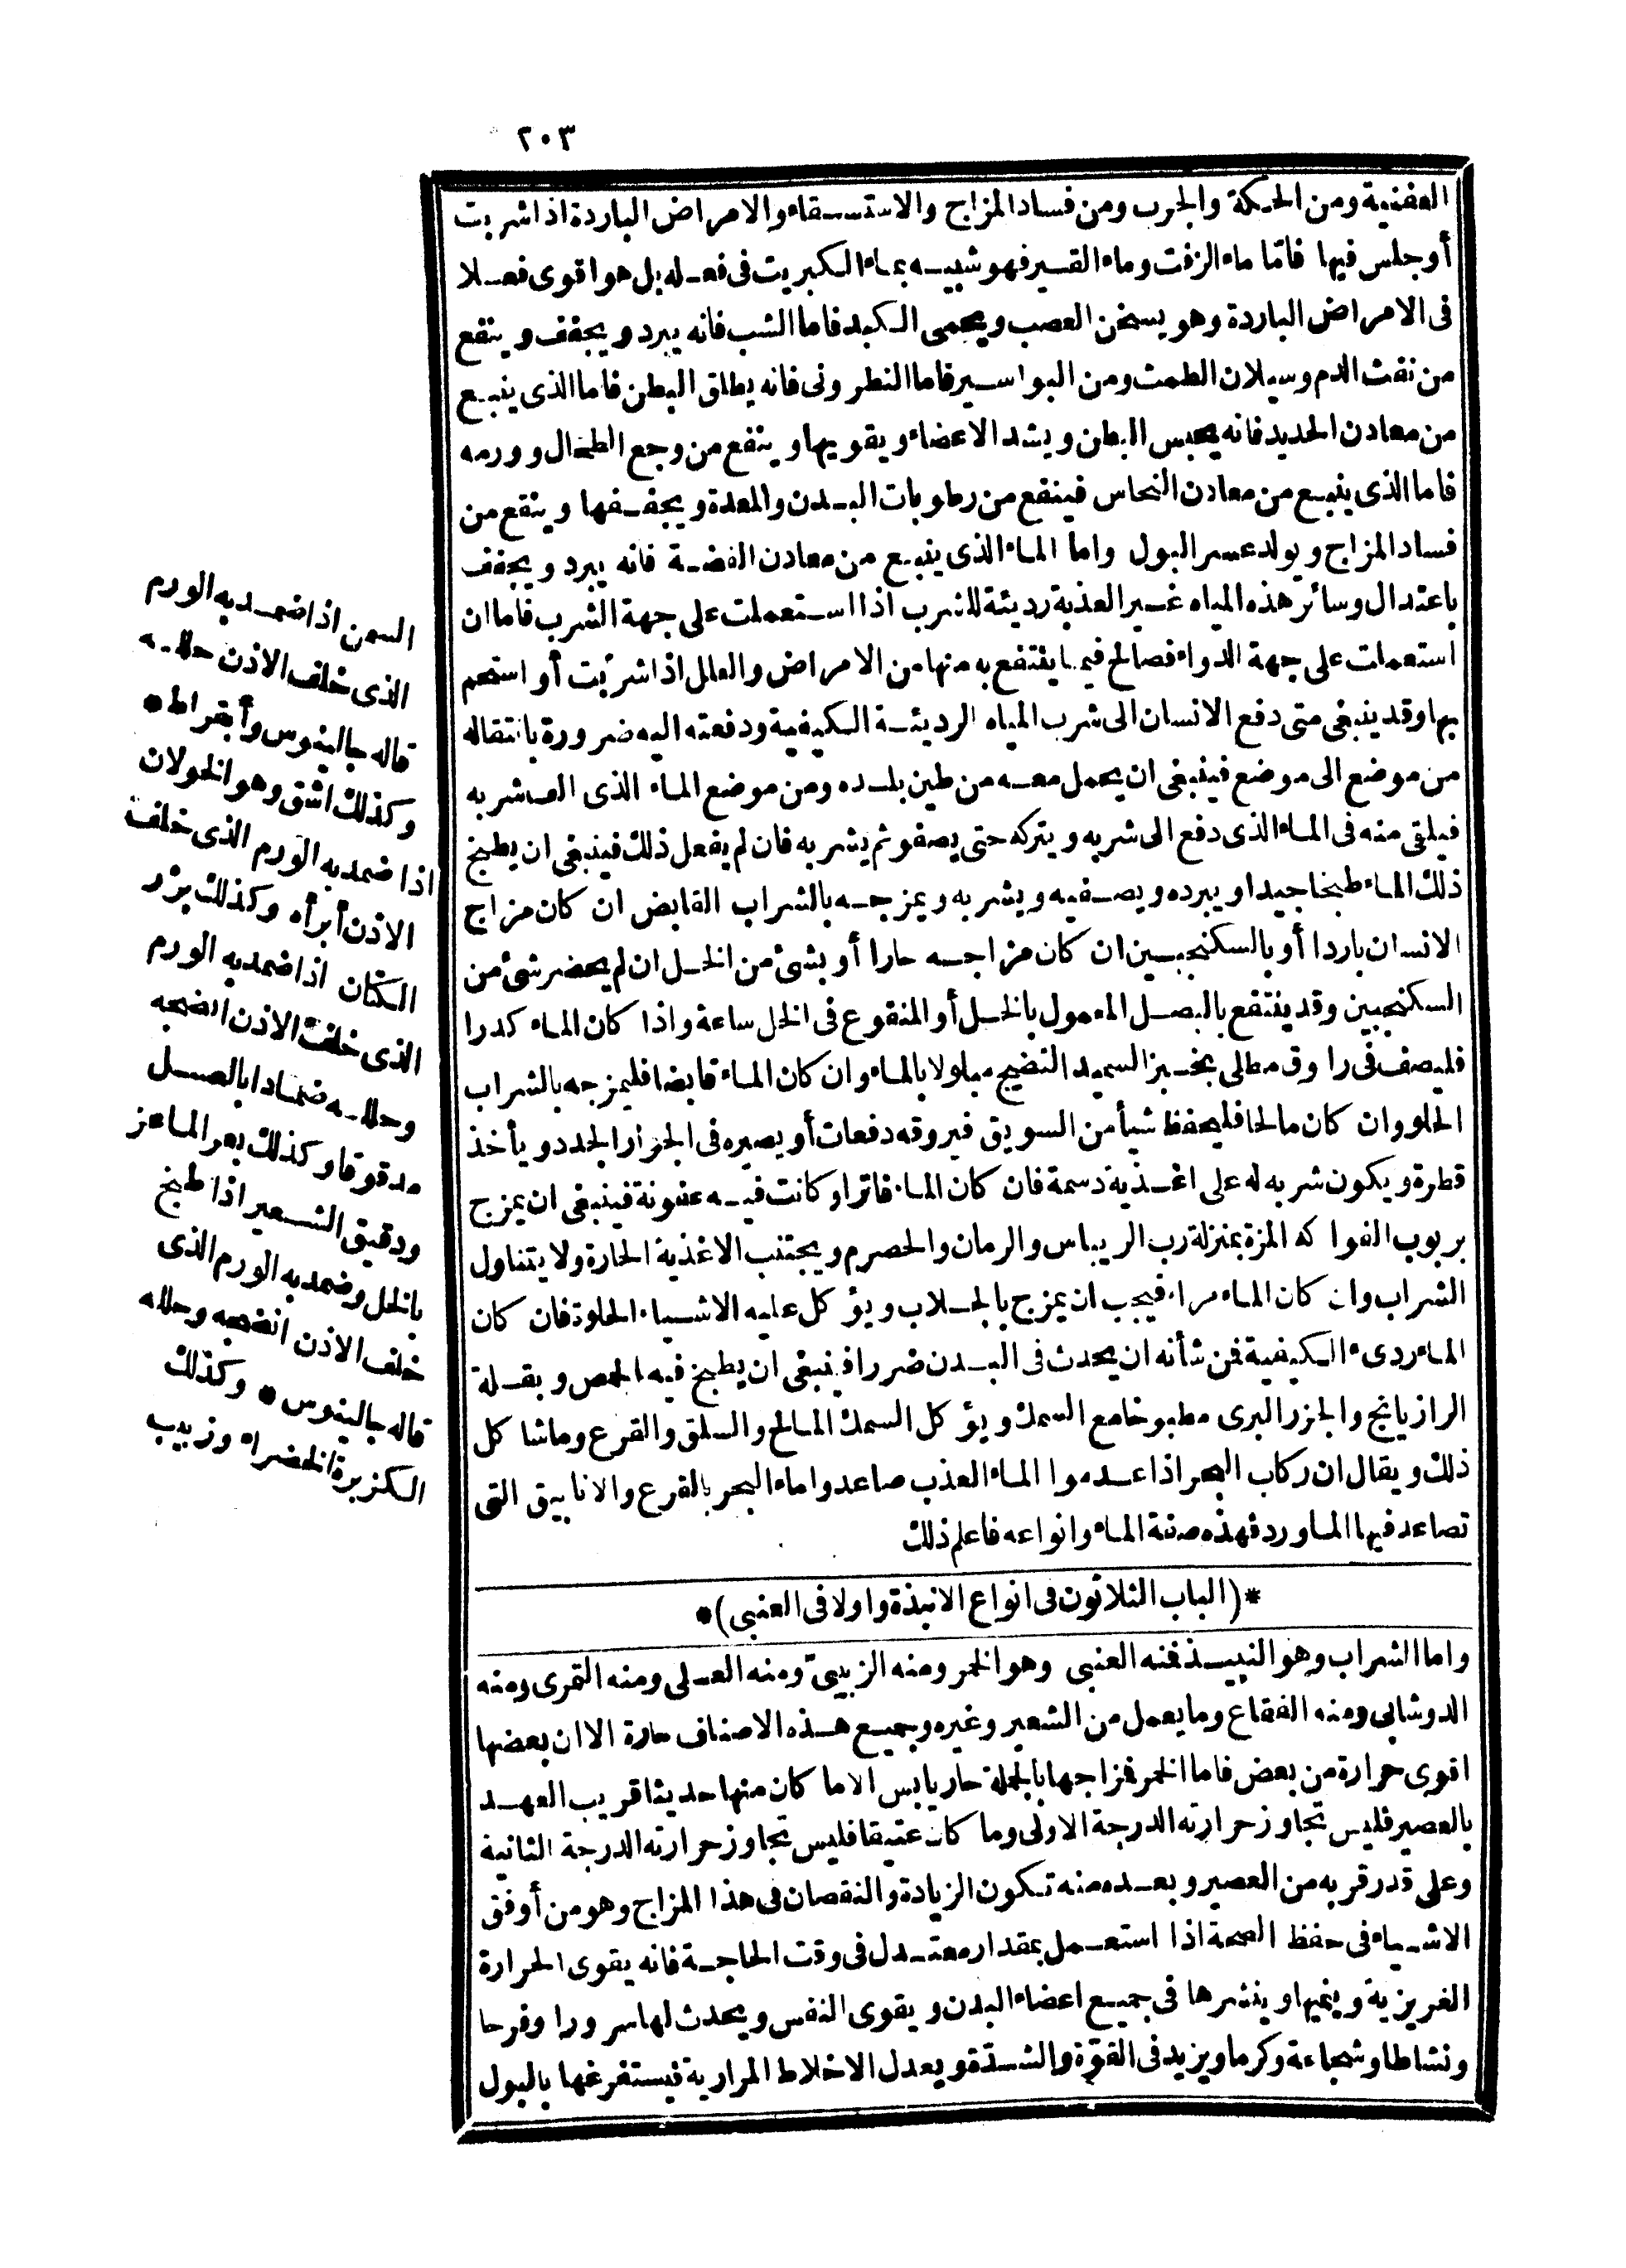 ٢٠٣
العفنية ومن الحكة والجرب ومن فساد المزاج والاستسقاء والامراض الباردة اذا شربت
أو جلس فيها فامّا ماء الزفت وماء القير فهو شبيه بماء الكبريت فى فعله بل هو اقوى فعلا
فى الامراض الباردة وهو يسخن العصب ويحمى الكبد فاما الشب فانه يبرد ويجفف وينفع
من نفث الدم وسيلان الطمث ومن البواسير فاما النطرونى فانه يطلق البطن فاما الذى ينبع
من معادن الحديد فانه يحبس البطن ويشد الاعضاء ويقويها وينفع من وجع الطحال وورمه
فاما الذى ينبع من معادن النحاس فينفع من رطوبات البدن والمعدة ويجففها وينفع من
فساد المزاج ويولد عسر البول واما الماء الذى ينبع من معادن الفضة فانه يبرد ويجفف
باعتدال وسائر هذه المياه غير العذبة رديئة للشرب اذا استعملت على جهة الشرب فاما ان
استعملت على جهة الدواء فصالح فيما ينتفع به منها من الامراض والعلل اذا شربت أو استحم
بها وقد ينبغى متى دفع الانسان الى شرب المياه الرديئة الكيفية ودفعته اليه ضرورة بانتقاله
من موضع الى موضع فينبغى ان يحمل معه من طين بلده ومن موضع الماء الذى الف شربه
فيلقى منه فى الماء الذى دفع الى شربه ويتركه حتى يصفو ثم يشربه فان لم يفعل ذلك فينبغى ان يطبخ
ذلك الماء طبخا جيدا ويبرده ويصفيه ويشربه ويمزجه بالشراب القابض ان كان مزاج
الانسان باردا أو بالسكنجبين ان كان مزاجه حارا أو بشئ من الخل ان لم يحضر شئ من
السكنجبين وقد ينتفع بالبصل المعمول بالخل أو المنقوع فى الخل ساعة واذا كان الماء كدرا
فليصف فى راوق مطلى بخبز السميد النضيج مبلولا بالماء وان كان الماء قابضا فليمزجه بالشراب
الحلو وان كان مالحا فليحفظ شيأ من السويق فيروقه دفعات أو يصيره فى الجرار الجدد ويأخذ
قطره ويكون شربه له على اغذية دسمة فان كان الماء فاترا وكانت فيه عفونة فينبغى ان يمزج
بربوب الفواكه المزة بمنزلة رب الريباس والرمان والحصرم ويجتنب الاغذية الحارة ولا يتناول
الشراب وان كان الماء مرا فيجب ان يمزج بالجلاب ويؤكل عليه الاشياء الحلوة فان كان
الماء ردىء الكيفية فمن شأنه ان يحدث فى البدن ضررا فينبغى ان يطبخ فيه الحمص وبقلة
الرازيانج والجزر البرى مطبوخا مع السمك ويؤكل السمك المالح والسلق والقرع وما شاكل
ذلك ويقال ان ركاب البحر اذا عدموا الماء العذب صاعدوا ماء البحر بالقرع والانابيق التى
تصاعد فيها الماورد فهذه صفة الماء وانواعه فاعلم ذلك
*(الباب الثلاثون فى انواع الانبذة واولا فى العنبى)*
واما الشراب وهو النبيذ فمنه العنبى وهو الخمر ومنه الزبيبىّ ومنه العسلى ومنه التمرى ومنه
الدوشابى ومنه الفقاع وما يعمل من الشعير وغيره وجميع هذه الاصناف حارة الا ان بعضها
اقوى حرارة من بعض فاما الخمر فمزاجها بالجملة حار يابس الا ما كان منها حديثا قريب العهد
بالعصير فليس تجاوز حرارته الدرجة الاولى وما كان عتيقا فليس تجاوز حرارته الدرجة الثانية
وعلى قدر قربه من العصير وبعده منه تكون الزيادة والنقصان فى هذا المزاج وهو من أوفق
الاشياء فى حفظ الصحة اذا استعمل بمقدار معتدل فى وقت الحاجة فانه يقوى الحرارة
الغريزية وينميها وينشرها فى جميع اعضاء البدن ويقوى النفس ويحدث لها سرورا وفرحا
ونشاطا وشجاعة وكرما ويزيد فى القوّة والشدّة ويعدل الاخلاط المرارية فيستفرغها بالبول
السمن اذا ضمد به الورم
الذى خلف الاذن حلله
قاله جالينوس وأبقراط *
وكذلك اشق وهو الخولان
اذا ضمد به الورم الذى خلف
الاذن أبرأه وكذلك بزر
الكتان اذا ضمد به الورم
الذى خلف الاذن انضجه
وحلله ضمادا بالعسل
مدقوقا وكذلك بعر الماعز
ودقيق الشعير اذا طبخ
بالخل وضمد به الورم الذى
خلف الاذن انضجه وحلله
قاله جالينوس * وكذلك
الكزبرة الخضراء وزبيب